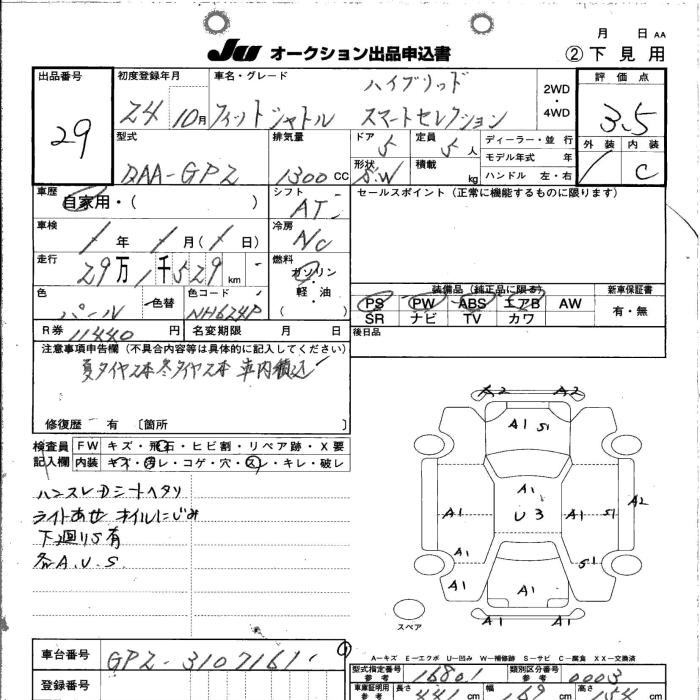 月 日 AA
JU オークション出品申込書 ② 下見用
出品番号 初度登録年月 車名・グレード 評価点
29
24 10月 フィットシャトル ハイブリッド スマートセレクション
2WD・4WD
3.5
型式 排気量 ドア 定員 ディーラー・並行
外装 内装
DAA-GP2 1300 CC 5 5人
モデル年式 年
形状 積載 ハンドル 左・右
S.W kg
C
車歴 シフト セールスポイント (正常に機能するものに限ります)
自家用・( ) AT
車検 冷房
年 月( 日)
走行 燃料
29万 1千529 km ガソリン・軽・油
( )
装備品 (純正品に限る) 新車保証書
色 色替 色コード
パール NH624P
PS PW ABS エアB AW 有・無
SR ナビ TV カワ
R券 11440 円 名変期限 月 日 後日品
注意事項申告欄 (不具合内容等は具体的に記入してください)
夏タイヤ4本冬タイヤ4本 車内積込
修復歴 有 〔箇所 〕
検査員記入欄
FW キズ・飛石・ヒビ割・リペア跡・X要
内装 キズ・汚レ・コゲ・穴・スレ・キレ・破レ
ハンスレ Dシートヘタリ
ライトあせ オイルにじみ
下廻りS有
各A.U.S.
A2 A2
A1 S1
A1
U3
A1 A1 S1 A2
A1 S1
A1 A1 A1
A1 A1
スペア
A-キズ E-エクボ U-凹み W-補修跡 S-サビ C-腐食 XX-交換済
車台番号 GP2-3107161
型式指定番号 参考 16801 類別区分番号 参考 0003
登録番号
車庫証明用 参考 長さ 441 cm 幅 cm 高さ 154 cm